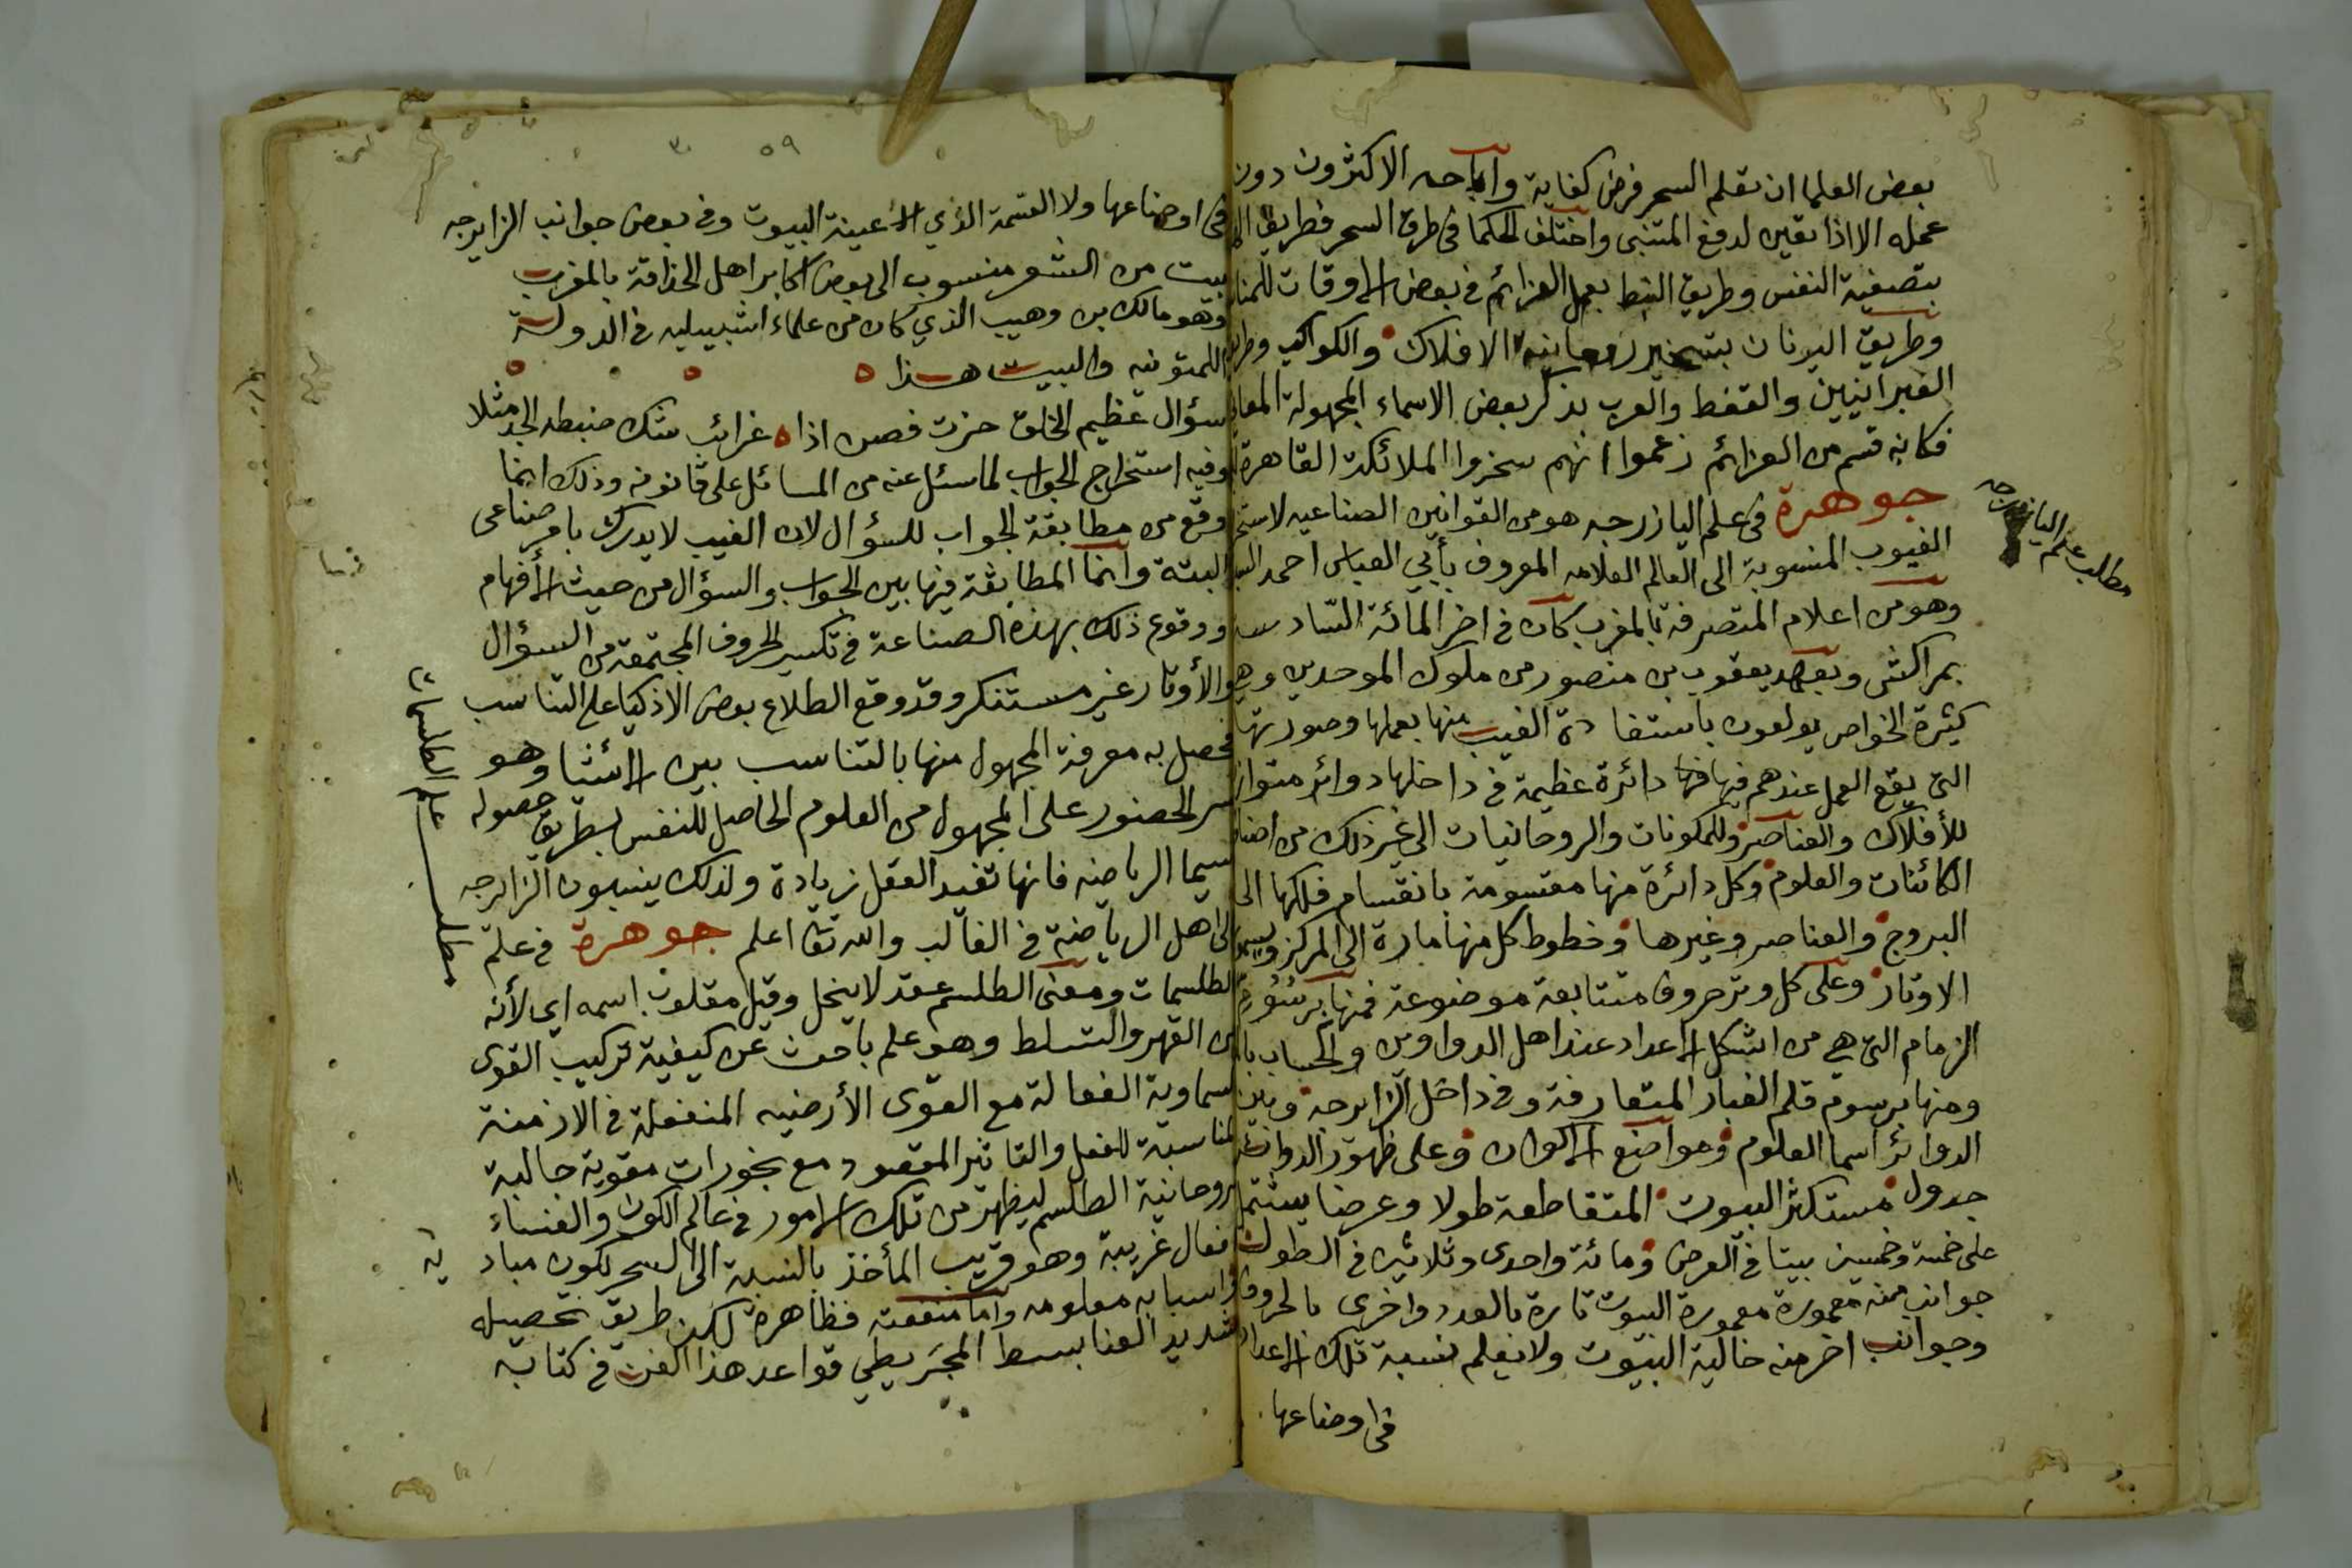 بعض العلما ان تعلم السحر فرض كفاية واباحه الاكثرون دون
عمله الا اذا تعين لدفع المتنبى واختلف الحكما فى طرق السحر فطريق
بتصفية النفس وطريق النبط بعمل العزائم فى بعض الاوقات
وطريق اليونان بتسخير روحانيه الافلاك والكواكب وطريق
العبرانيين والقفط والعرب بذكر بعض الاسماء المجهولة المعانى
فكانه قسم من العزائم زعموا انهم سخروا الملائكة القاهرة
جوهرة فى علم اليازرجه هو من القوانين الصناعيه لاستخ
الغيوب المنسوبة الى العالم العلامه المعروف بأبي العباس احمد
وهو من اعلام المتصرفة بالمغرب كان فى اخر المائة السّادسه
بمراكش وبعهد يعقوب بن منصور من ملوك الموحدين وهى
كثيرة الخواص يولعون باستفادة الغيب منها بعملها وصورتها
التى يقع العمل عندهم فيها فيها دائرة عظيمة فى داخلها دوائر متواز
للأفلاك والعناصر وللمكونات والروحانيات الى غير ذلك من اصنا
الكائنات والعلوم وكل دائرة منها مقسومة بانقسام فلكها الى
البروج والعناصر وغيرها وخطوط كل منها مارة الى المركز ويسمو
الاوتار وعلى كل وتر حروف متتابعة موضوعة فمنها برسُومِ
الزمام التى هى من اشكل الاعداد عند اهل الدواوين والحساب
ومنها برسوم قلم الغبار المتعارفة وفى داخل الزايرجة وبين
الدوائر اسما العلوم ومواضع الاكوان وعلى ظهور الدوائر
جدول مستكثر البيوت المتقاطعة طولا وعرضا يشتمل
على خمسة وخمسين بيتا فى العرض ومائة واحدى وثلاثين فى الطول
جوانب منه معمورة معمورة البيوت تارة بالعدد واخرى بالحروف
وجوانب اخر منه خالية البيوت ولا نعلم نسبة تلك الاعداد
فى اوضاعها
مطلب علم اليازرجه
٥٩
فى اوضاعها ولا القسمة الذي الاعينة البيوت وفى بعض جوانب الزايرجه
بيت من الشعر منسوب الى بعض اكابر اهل الحذاقة بالمغرب
وهو مالك بن وهيب الذي كان من علماء اشبيليه فى الدولة
اللمتونيه والبيت هذا
سؤال عظيم الخلق حزت فصن اذا ه غرائب شك ضبطه الجد مثلا
وفيه استخراج الجواب لما سئل عنه من المسائل على قانونه وذلك انما
وقع من مطابقة الجواب للسؤال لان الغيب لا يدرك بامر صناعى
البتة وانما المطابقة فيها بين الجواب والسؤال من حيث الأفهام
ووقوع ذلك بهذه الصناعة فى تكسير الحروف المجتمعة من السؤال
والأوتار غير مستنكر وقد وقع الطلاع بعض الاذكيا على التناسب
فحصل به معرفة المجهول منها بالتناسب بين الاشيا وهو
سر الحصنور على المجهول من العلوم الحاصل للنفس بطريق حصوله
سيما الرياضه فانها تفيد العقل زيادة ولذلك ينسبون الزايرجه
الى اهل الرياضة فى الغالب والله تعا اعلم جوهرة فى علم
الطلسمات ومعنى الطلسم عقد لا ينحل وقيل مقلوب اسمه اى لأنه
من القهر والتسلط وهو علم باحث عن كيفية تركيب القوى
السماوية الفعالة مع القوى الأرضيه المنفعلة فى الازمنة
المناسبة للفعل والتاثير المقصود مع بخورات مقوية جالبة
لروحانية الطلسم ليظهر من تلك الامور فى عالم الكون والفساد
افعال غريبة وهو قريب المأخذ بالنسبة الى السحر لكون مباديه
واسبابه معلومه واما منفعته فظاهرة لكن طريق تحصيله
شديد العنا بسط المجَريطي قواعد هذا الفن فى كتابه
مطلب علم الطلسمات